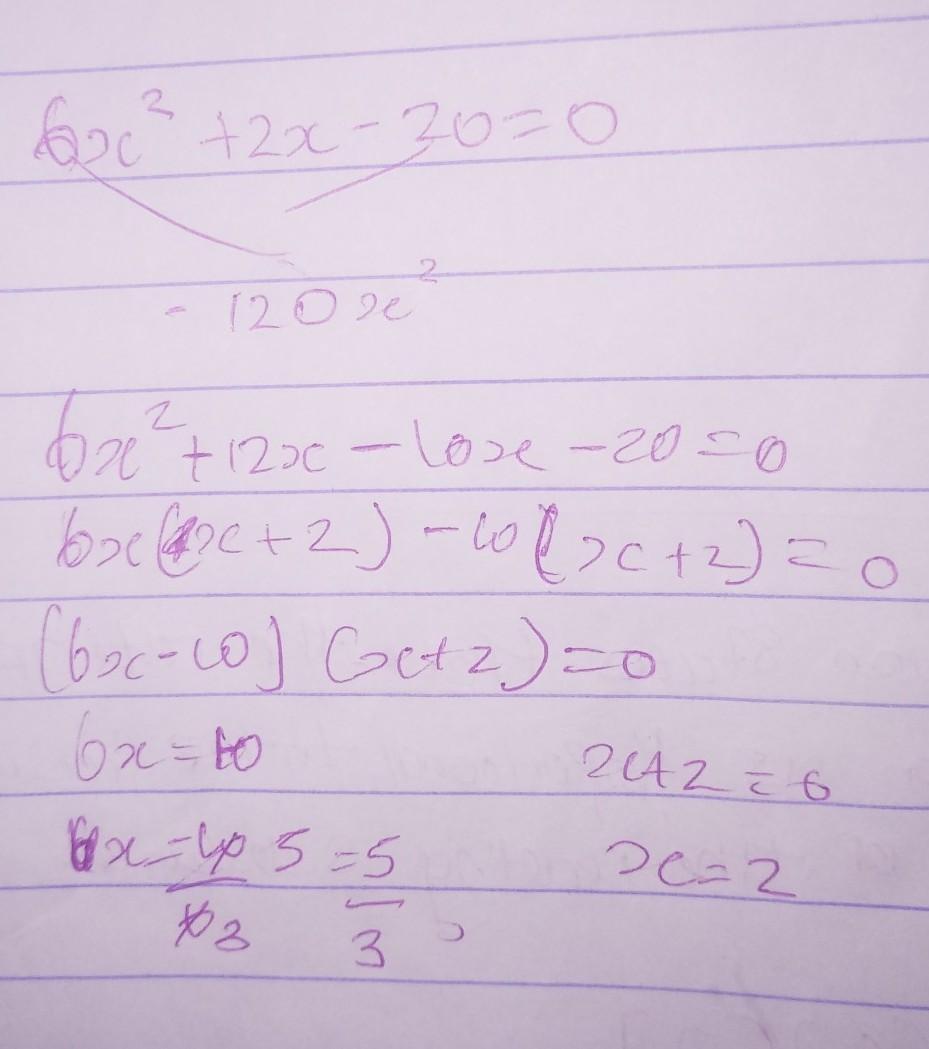 6x² + 2x - 20 = 0
- 120x²
6x² + 12x - 10x - 20 = 0
6x(x + 2) - 10(x + 2) = 0
(6x - 10) (x + 2) = 0
6x = 10 x + 2 = 0
x = 10 5 / 3 = 5 / 3 , x = 2